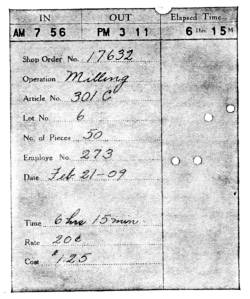 IN OUT Elapsed Time
AM 7 56 PM 3 11 6 Hrs. 15 M
Shop Order No. 17632
Operation Milling
Article No. 301 C
Lot No. 6
No. of Pieces 50
Employe No. 273
Date Feb. 21-09
Time 6 hrs 15 min
Rate 20¢
Cost $1.25